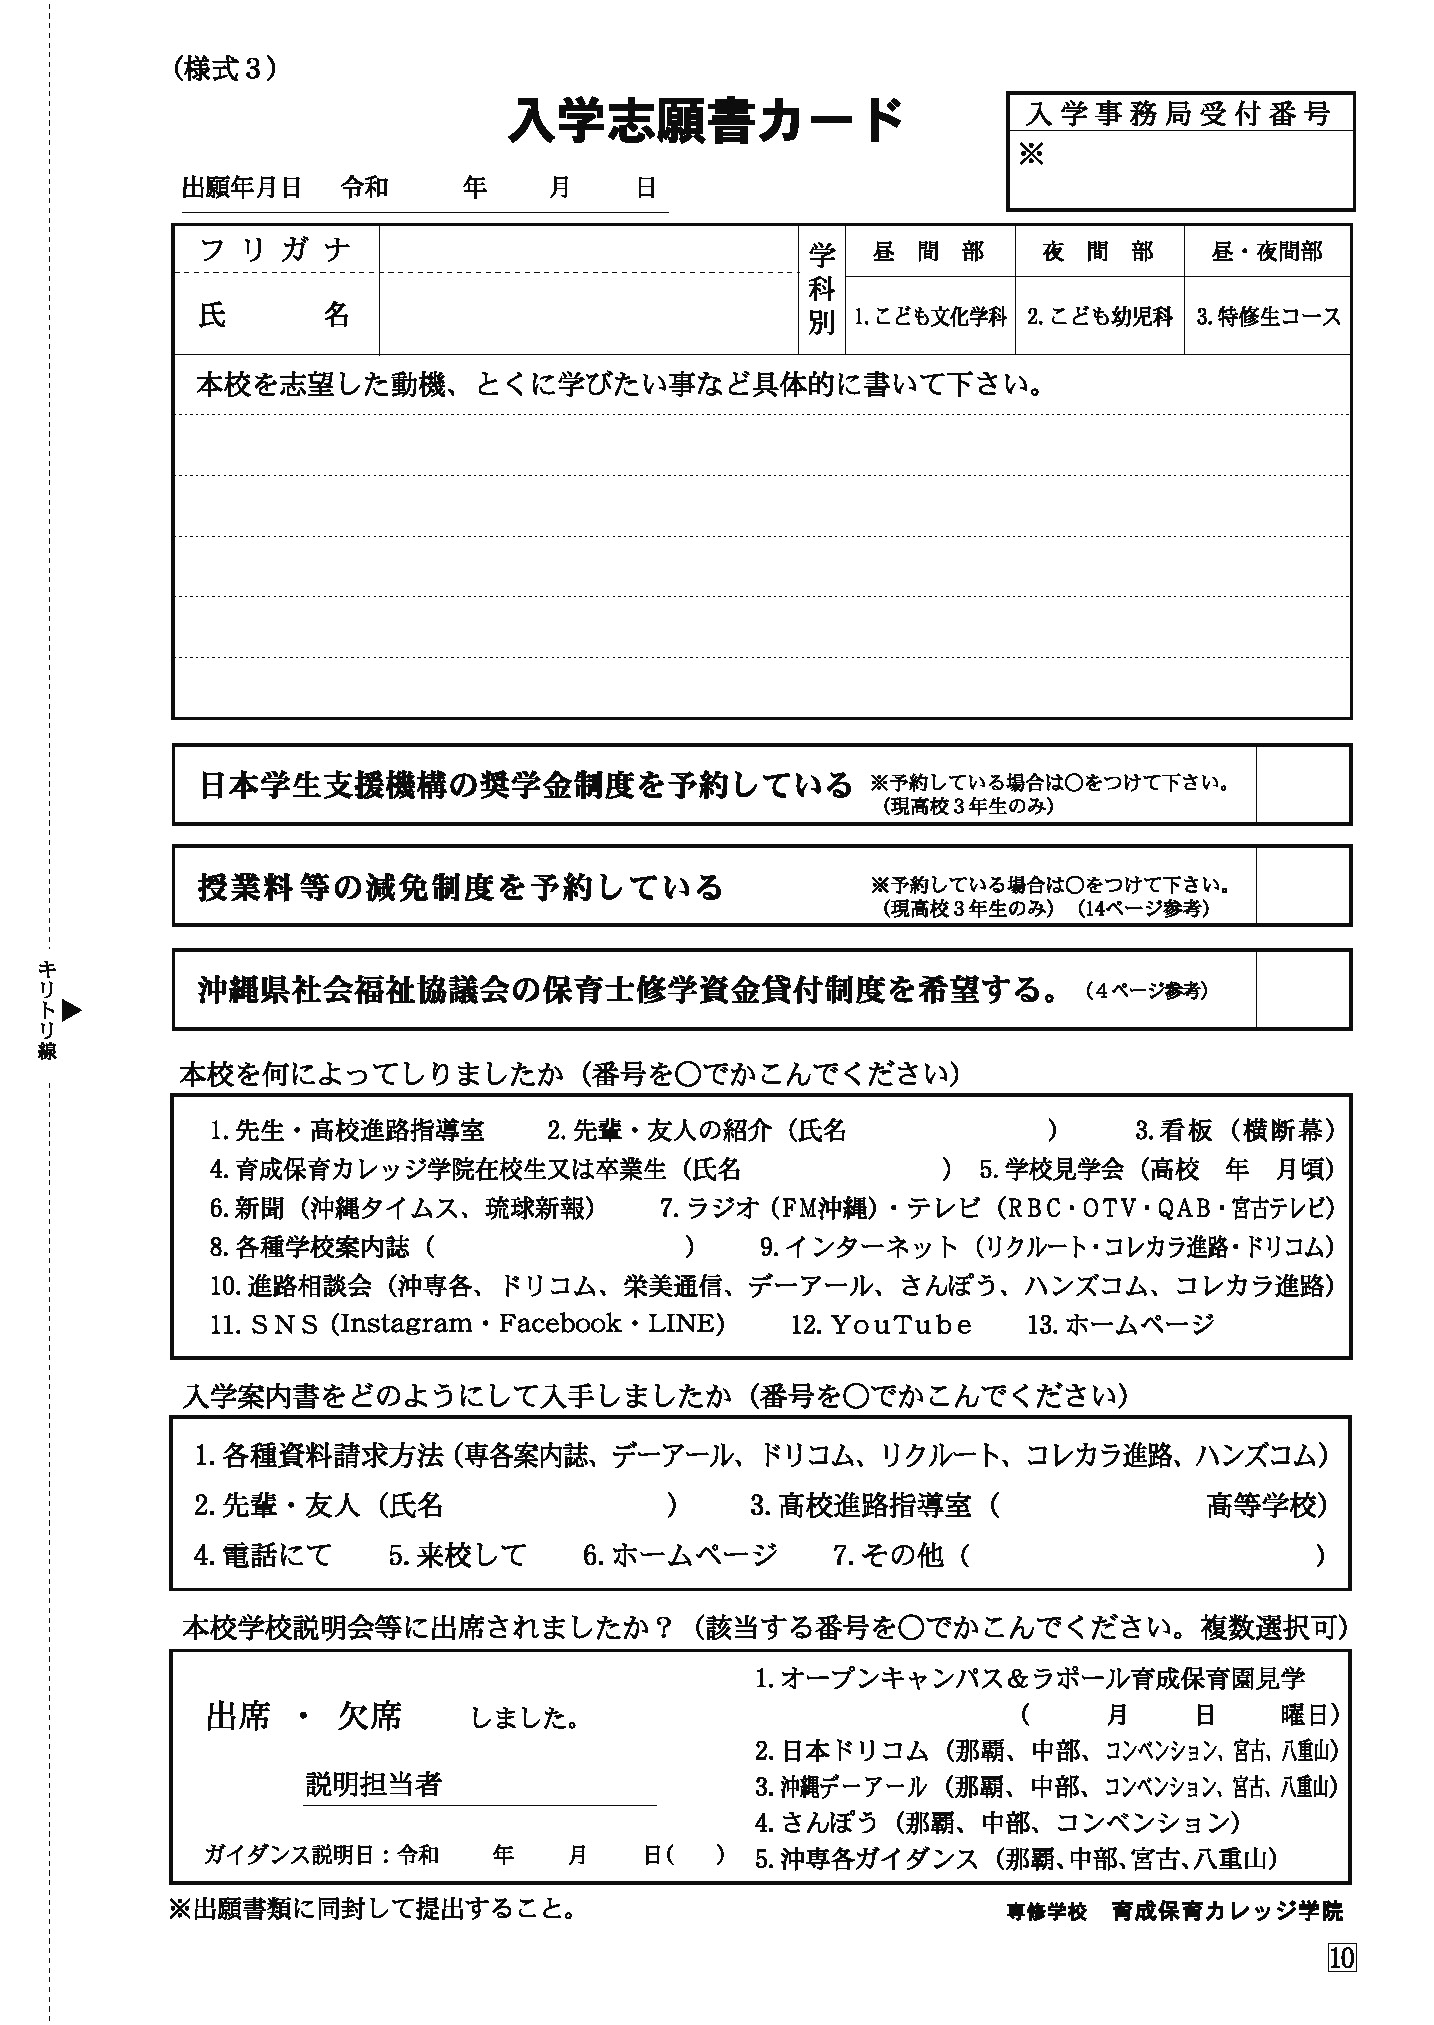 （様式３）
入学志願書カード
入学事務局受付番号
※
出願年月日　令和　　　年　　　月　　　日
フリガナ
氏　　　名
学科別
昼　間　部
夜　間　部
昼・夜間部
1.こども文化学科
2.こども幼児科
3.特修生コース
本校を志望した動機、とくに学びたい事など具体的に書いて下さい。
日本学生支援機構の奨学金制度を予約している
※予約している場合は○をつけて下さい。
（現高校３年生のみ）
授業料等の減免制度を予約している
※予約している場合は○をつけて下さい。
（現高校３年生のみ）（14ページ参考）
沖縄県社会福祉協議会の保育士修学資金貸付制度を希望する。（４ページ参考）
キリトリ線
▶
本校を何によってしりましたか（番号を○でかこんでください）
1.先生・高校進路指導室　　2.先輩・友人の紹介（氏名　　　　　　　　）　　3.看板（横断幕）
4.育成保育カレッジ学院在校生又は卒業生（氏名　　　　　　　　）　5.学校見学会（高校　年　月頃）
6.新聞（沖縄タイムス、琉球新報）　　7.ラジオ（FM沖縄）・テレビ（RBC・OTV・QAB・宮古テレビ）
8.各種学校案内誌（　　　　　　　　　　）　　9.インターネット（リクルート・コレカラ進路・ドリコム）
10.進路相談会（沖専各、ドリコム、栄美通信、デーアール、さんぽう、ハンズコム、コレカラ進路）
11.ＳＮＳ（Instagram・Facebook・LINE）　　12.ＹｏｕＴｕｂｅ　　13.ホームページ
入学案内書をどのようにして入手しましたか（番号を○でかこんでください）
1.各種資料請求方法（専各案内誌、デーアール、ドリコム、リクルート、コレカラ進路、ハンズコム）
2.先輩・友人（氏名　　　　　　　　）　　3.高校進路指導室（　　　　　　　　高等学校）
4.電話にて　　5.来校して　　6.ホームページ　　7.その他（　　　　　　　　　　　　　）
本校学校説明会等に出席されましたか？（該当する番号を○でかこんでください。複数選択可）
出席 ・ 欠席　　しました。
説明担当者
ガイダンス説明日：令和　　年　　月　　日（　）
1.オープンキャンパス＆ラポール育成保育園見学
（　　　月　　　日　　　曜日）
2.日本ドリコム（那覇、中部、コンベンション、宮古、八重山）
3.沖縄デーアール（那覇、中部、コンベンション、宮古、八重山）
4.さんぽう（那覇、中部、コンベンション）
5.沖専各ガイダンス（那覇、中部、宮古、八重山）
※出願書類に同封して提出すること。
専修学校　育成保育カレッジ学院
10